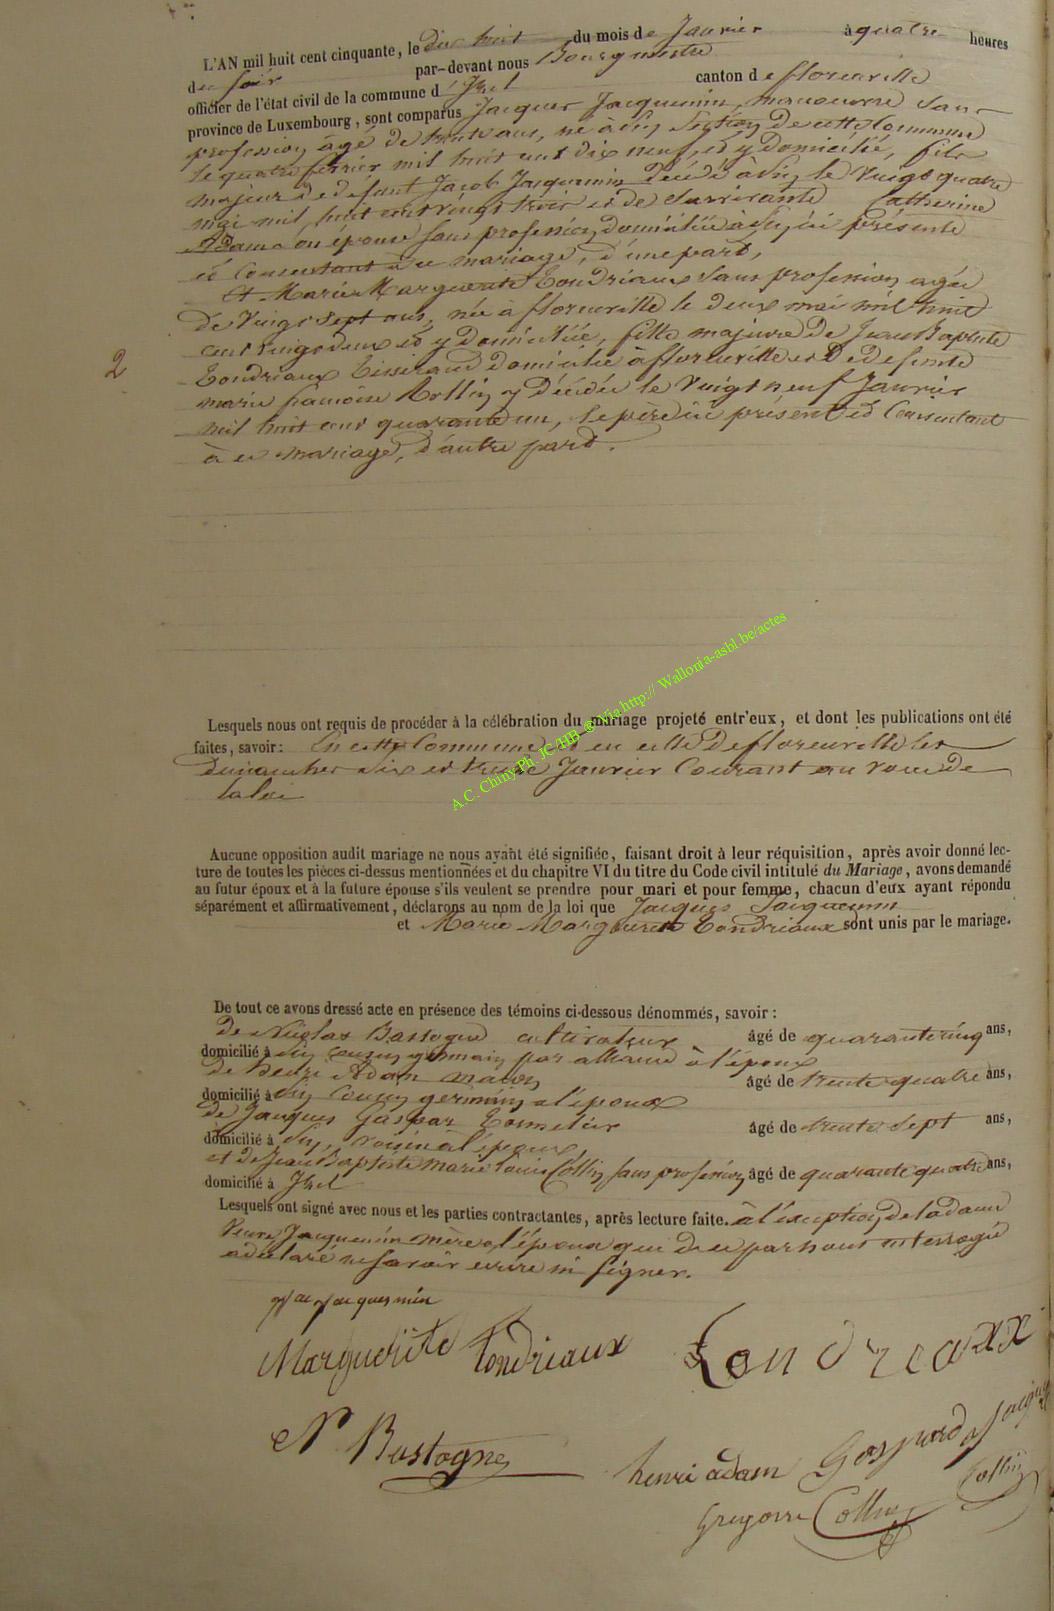 L'AN mil huit cent cinquante, le dix huit du mois de Janvier à quatre heures
du soir par-devant nous Bourgmestre
officier de l'état civil de la commune d'Izel canton de florenville
province de Luxembourg, sont comparus Jacques Jacquemin, manoeuvre sans
profession âgé de trente ans, né à Pin Section de cette Commune
le quatre février mil huit cent dix neuf, et y domicilié, fils
majeur de défunt Jacob Jacquemin décédé à Pin le vingt quatre
mai mil huit cent vingt trois et de Survivante Catherine
Adam son épouse sans profession domiciliée à Pin, ici présente
et Consentant à ce mariage, d'une part,
Et Marie Marguerite Tondriaux sans profession agée
de vingt sept ans, née à florenville le deux mai mil huit
cent vingt deux et y domiciliée, fille majeure de Jean Baptiste
Tondriaux Tisserand domicilié à florenville et de defunte
marie francoise Rollin y décédée le vingt neuf Janvier
2
mil huit cent quarante un, le père ici présent et Consentant
à ce mariage, d'autre part.
Lesquels nous ont requis de procéder à la célébration du mariage projeté entr'eux, et dont les publications ont été
faites, savoir: En cette Commune et en celle de florenville les
dimanches Six et treize Janvier Courant au voeu de
la loi
A.C. Chiny Ph. JC/HB ® Via http:// Wallonia-asbl.be/actes
Aucune opposition audit mariage ne nous ayant été signifiée, faisant droit à leur réquisition, après avoir donné lec-
ture de toutes les pièces ci-dessus mentionnées et du chapitre VI du titre du Code civil intitulé du Mariage, avons demandé
au futur époux et à la future épouse s'ils veulent se prendre pour mari et pour femme, chacun d'eux ayant répondu
séparément et affirmativement, déclarons au nom de la loi que Jacques Jacquemin
et Marie Marguerite Tondriaux sont unis par le mariage.
De tout ce avons dressé acte en présence des témoins ci-dessous dénommés, savoir:
de Nicolas Bastogne cultivateur âgé de quarante cinq ans,
domicilié à Pin cousin germain par alliance à l'époux
de Henri Adam maçon âgé de trente quatre ans,
domicilié à Pin Cousin germain à l'époux
de Jacques Gaspar Tonnelier âgé de trente sept ans,
domicilié à Pin, voisin à l'époux
et de Jean Baptiste Marie Louis Collin sans profession âgé de quarante quatre ans,
domicilié à Izel
Lesquels ont signé avec nous et les parties contractantes, après lecture faite. à l'exception de la dame
Veuve Jacquemin mère à l'époux qui de ce par nous interrogée
a déclaré ne savoir écrire ni signer.
Jacquesmin
Marguerite tondriaux Tondreaux
N Bastogne
henri adam Gaspard Jacques
Collin
Gregoire Collin